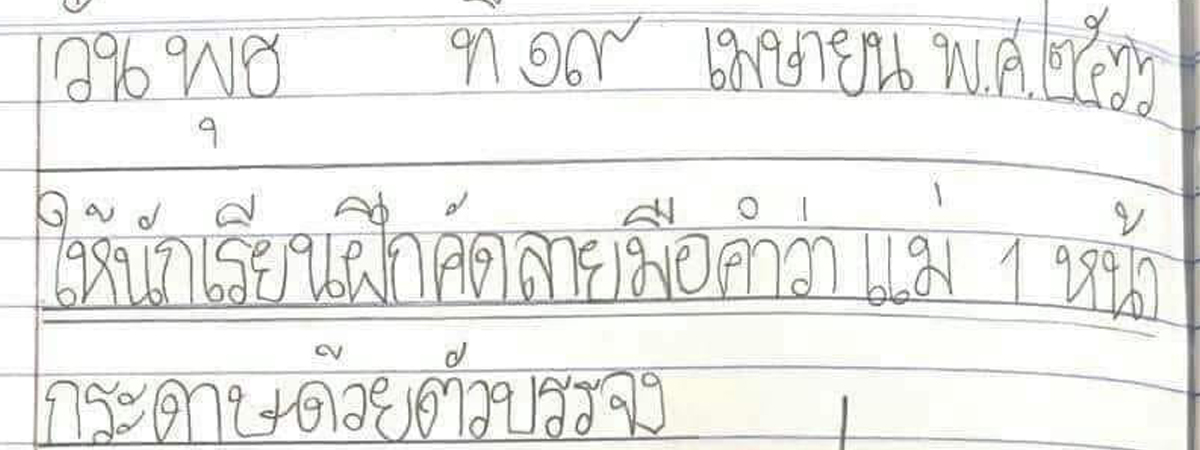 วัน พุธ ที่ ๑๙ เมษายน พ.ศ.
ให้นักเรียนฝึกคัดลายมือคำว่า แม่ 1 หน้า
กระดาษด้วยตัวบรรจง